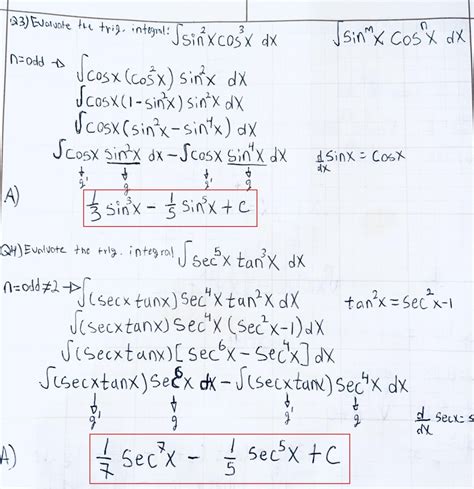 Q3) Evaluate the trig. integral: ∫sin²x cos³x dx
∫sinᵐx cosⁿx dx
n=odd → ∫cosx(cos²x) sin²x dx
∫cosx(1-sin²x)sin²x dx
∫cosx(sin²x-sin⁴x) dx
∫cosx sin²x dx - ∫cosx sin⁴x dx
d/dx sinx = cosx
g' g g' g
A) 1/3 sin³x - 1/5 sin⁵x + C
Q4) Evaluate the trig. integral ∫sec⁵x tan³x dx
n=odd≠2 → ∫(secx tanx) sec⁴x tan²x dx
tan²x = sec²x-1
∫(secx tanx) sec⁴x (sec²x-1) dx
∫(secx tanx)[sec⁶x - sec⁴x] dx
∫(secx tanx) sec⁶x dx - ∫(secx tanx) sec⁴x dx
g' g g' g
d/dx secx = s
A) 1/7 sec⁷x - 1/5 sec⁵x + C